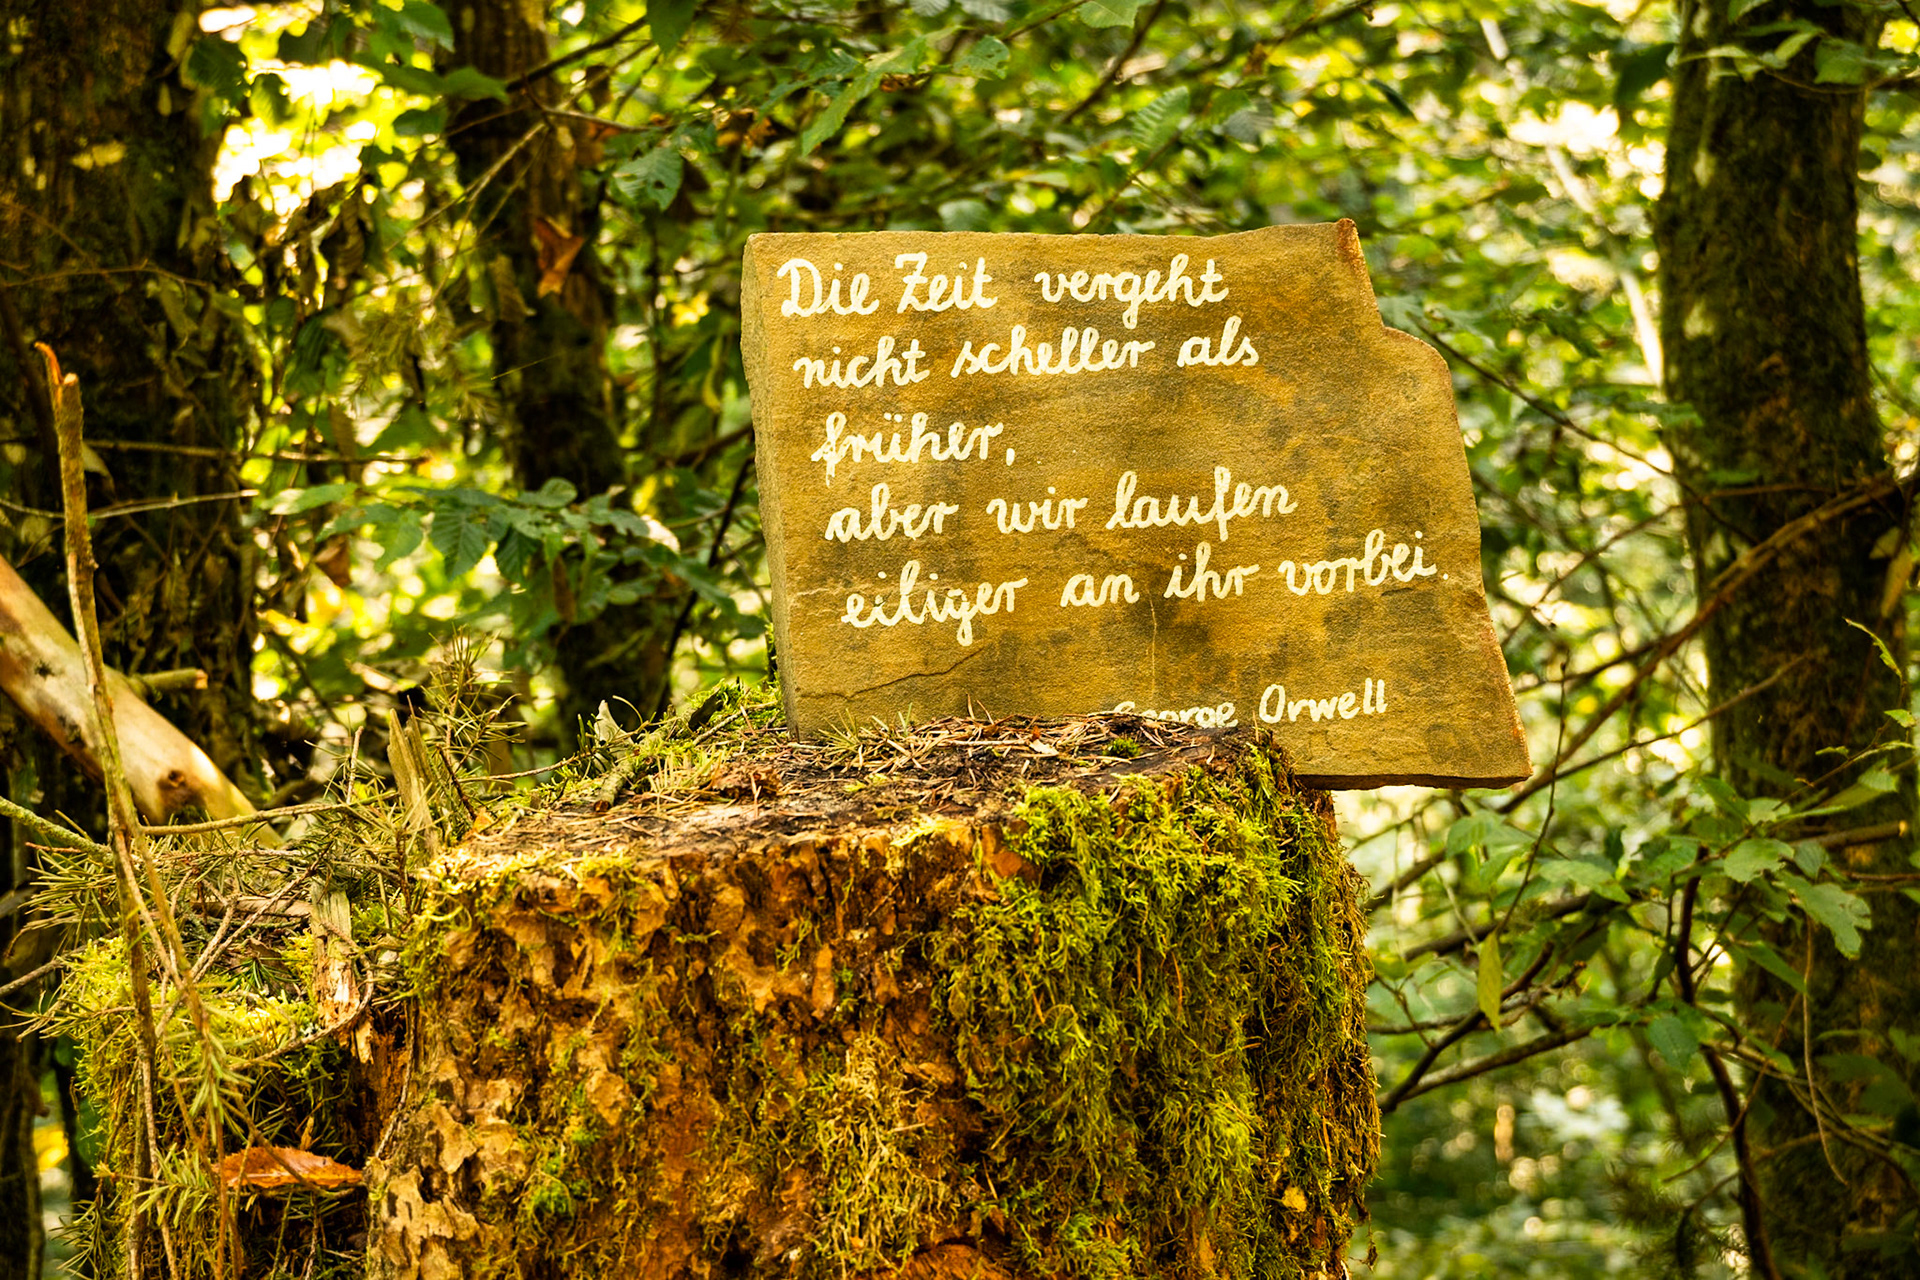 Die Zeit vergeht
nicht scheller als
früher,
aber wir laufen
eiliger an ihr vorbei.
George Orwell